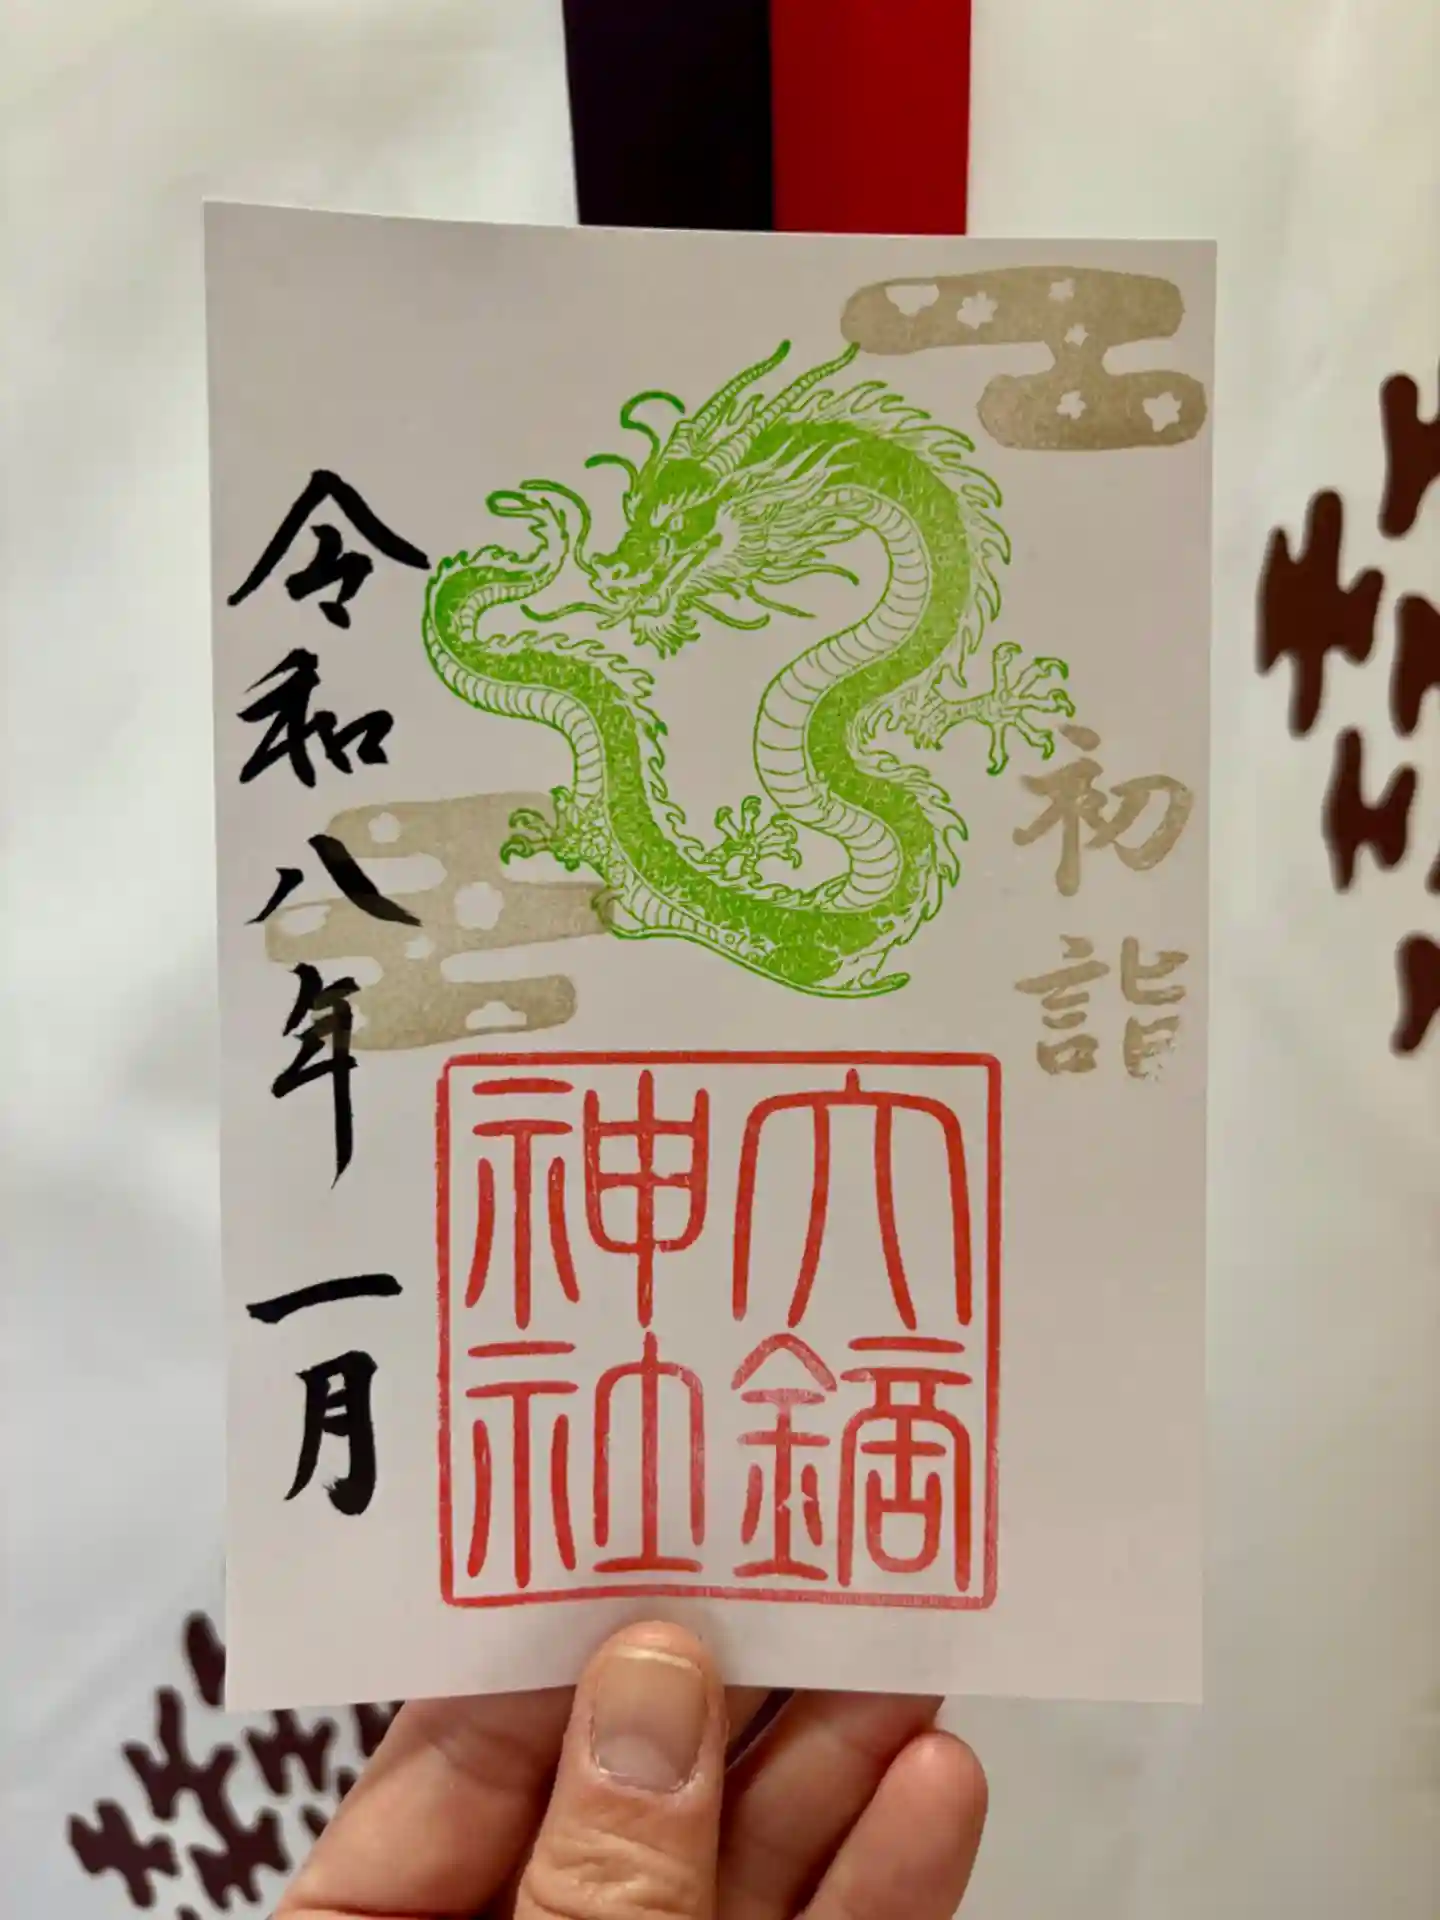 初詣
大鏑
神社
令和八年一月